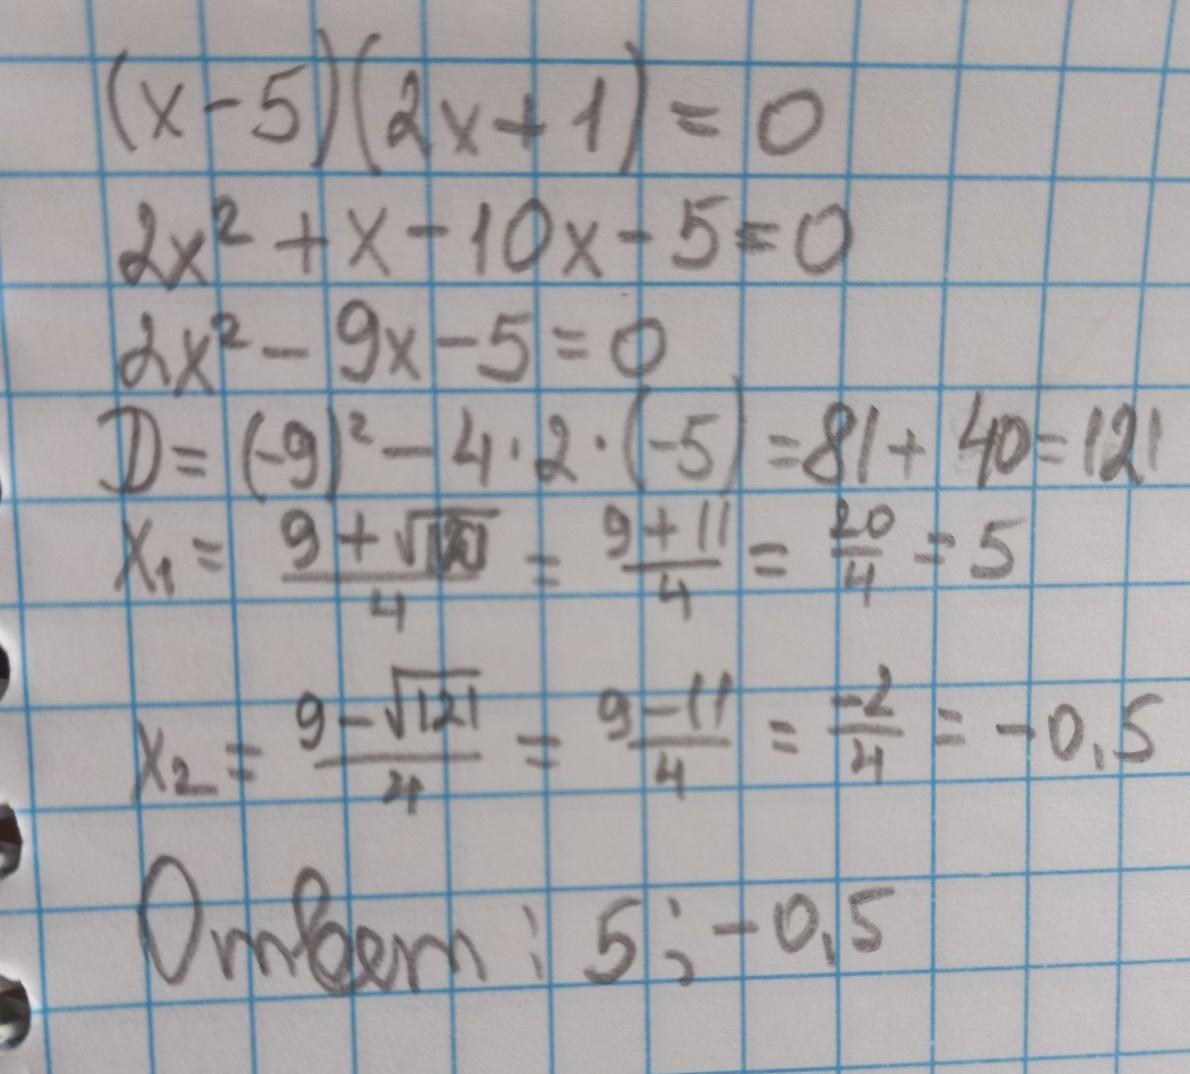 (x-5)(2x+1)=0
2x²+x-10x-5=0
2x²-9x-5=0
D=(-9)²-4·2·(-5)=81+40=121
x₁=(9+√121)/4=(9+11)/4=20/4=5
x₂=(9-√121)/4=(9-11)/4=-2/4=-0,5
Ответ: 5; -0,5